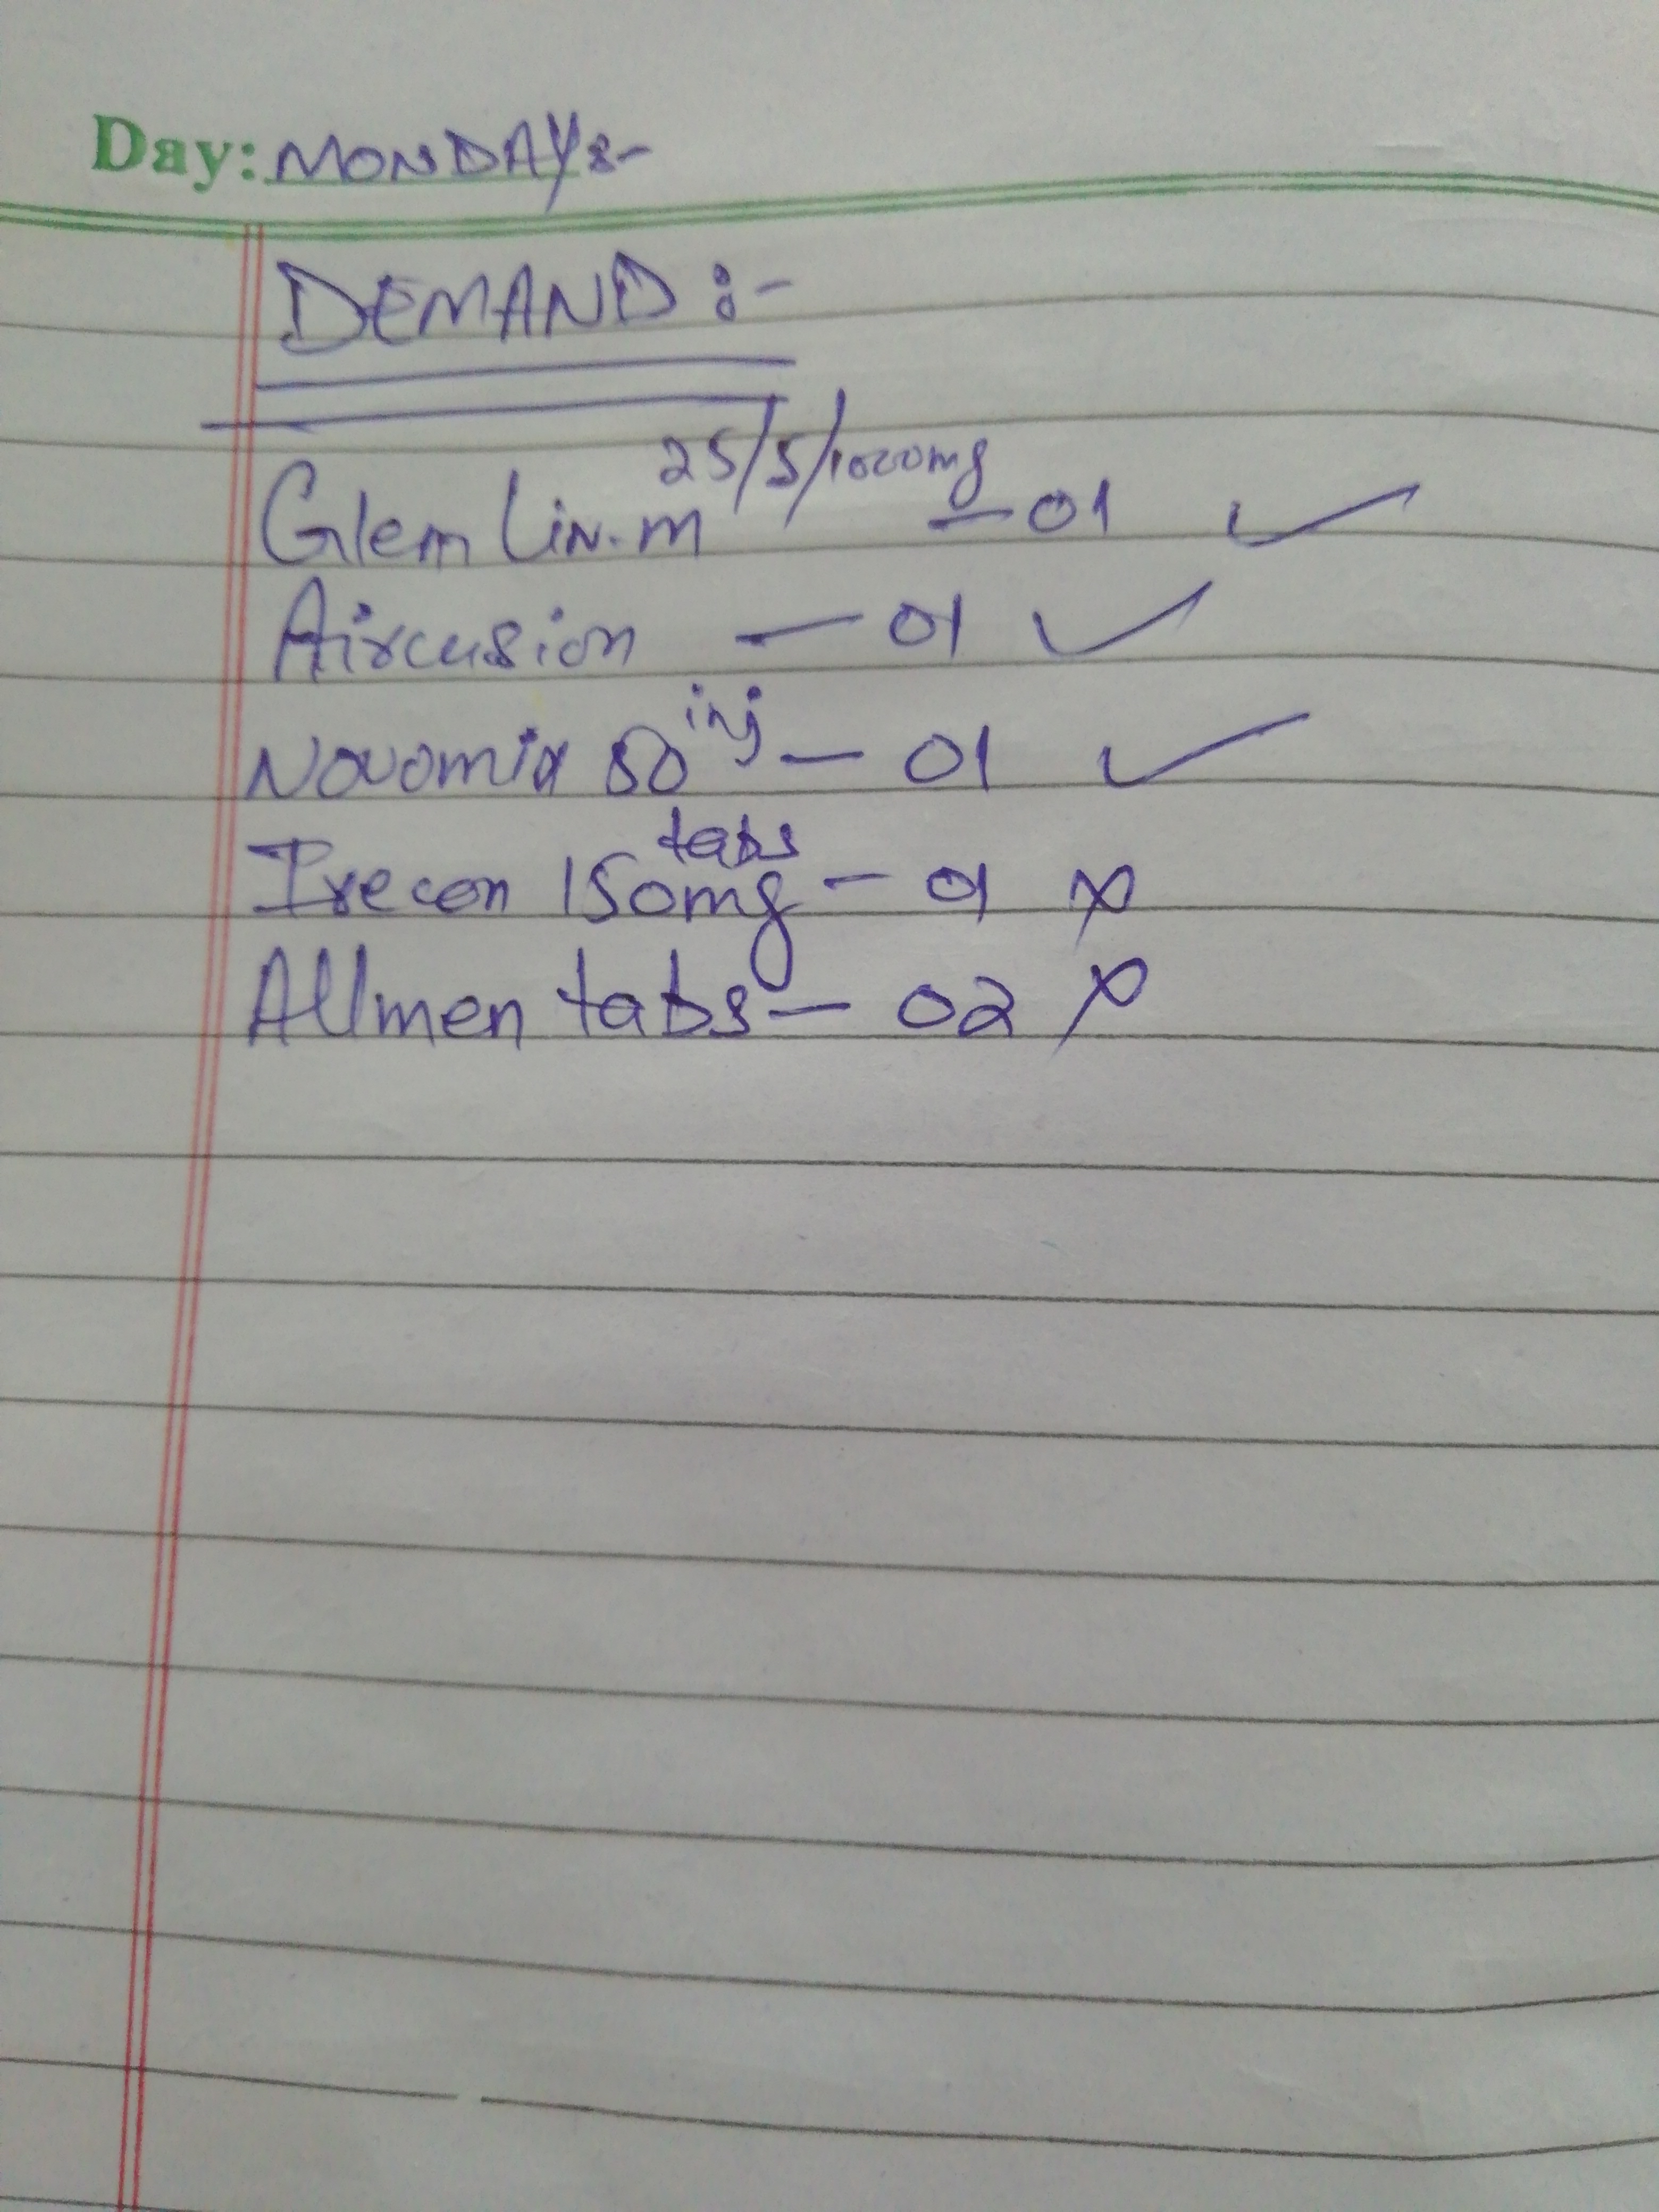 Day: MONDAY:-
DEMAND :-
Glem Lin.m 25/5/1000mg - 01 ✓
Aircusion - 01 ✓
Novomix 50 inj - 01 ✓
Irecon 150mg tabs - 01 ✗
Allmen tabs - 02 ✗